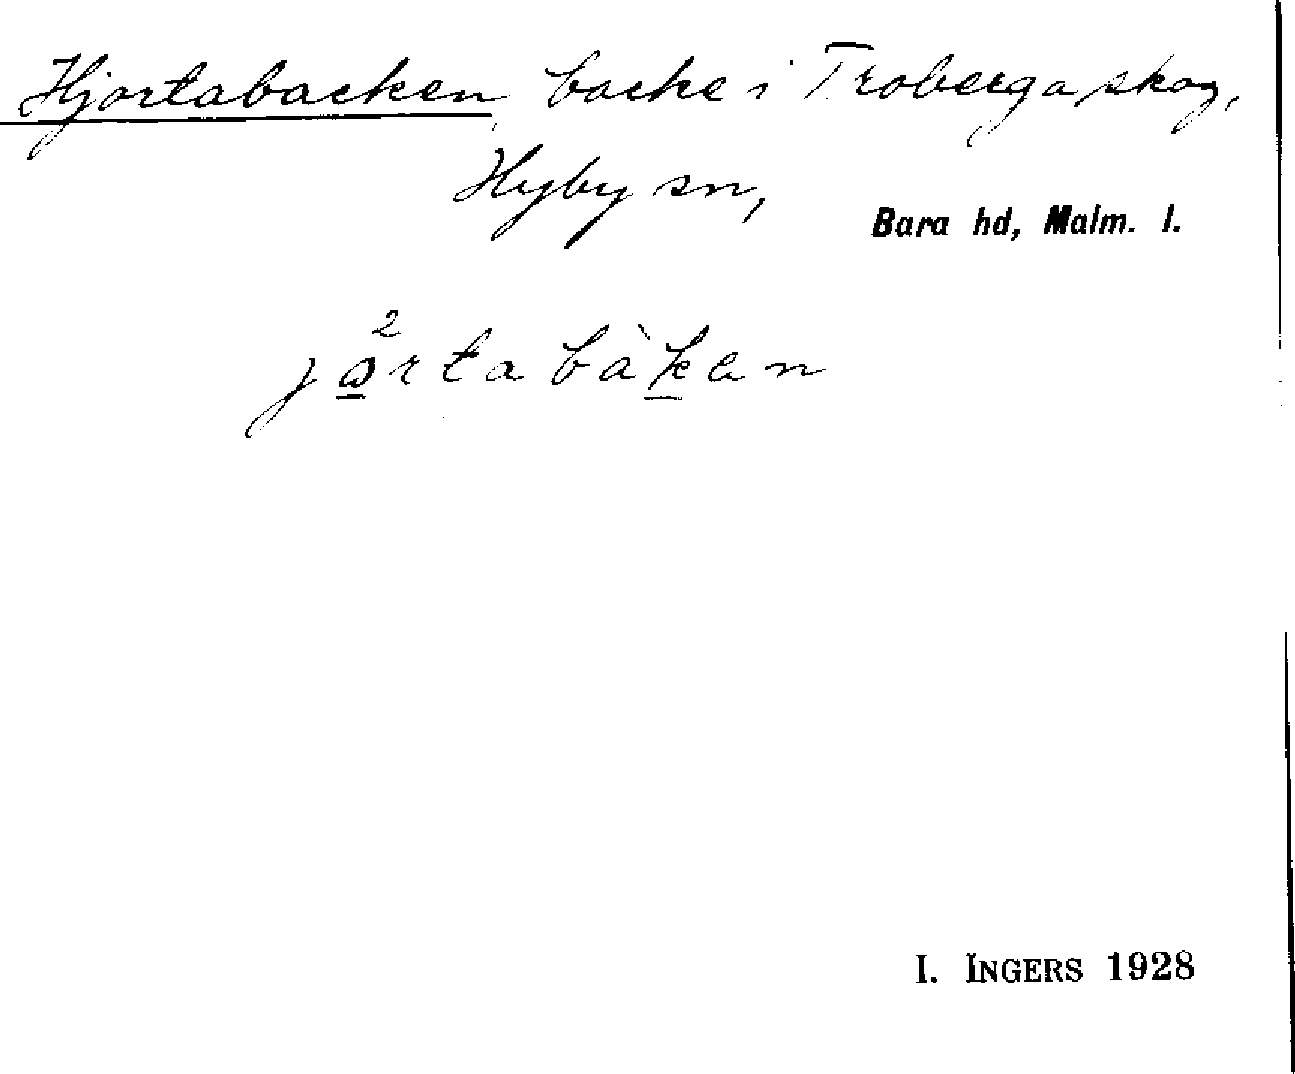 Hjortabacken backe i Troberga skog,
Hyby sn,
Bara hd, Malm. l.
I. INGERS 1928